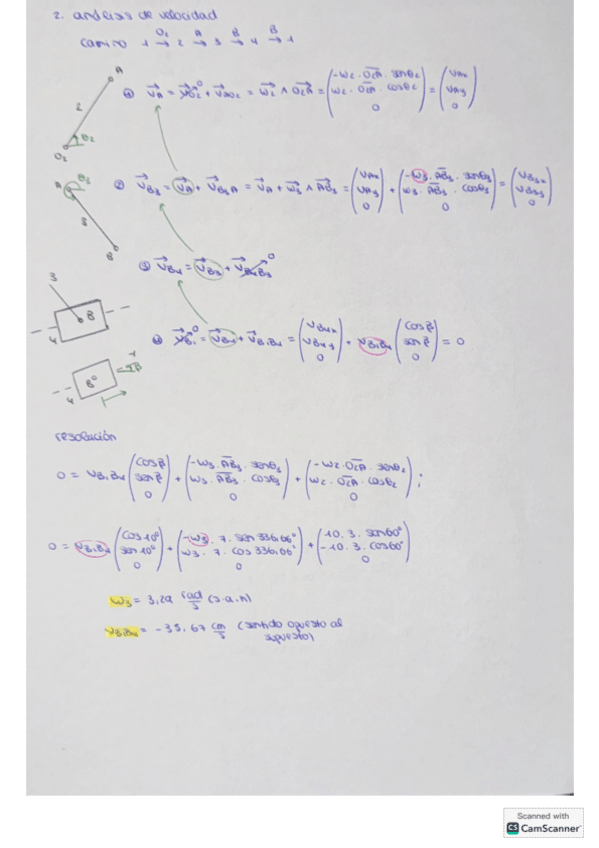 2. análisis de velocidad
camino 1 →(O₂) 2 →(A) 3 →(B) 4 →(B) 1
A
2
O₂ θ₂
① v⃗_A = v⃗_O₂ ⁰ + v⃗_AO₂ = ω⃗₂ ∧ O₂A⃗ = (-ω₂ · O₂A · senθ₂ ; ω₂ · O₂A · cosθ₂ ; 0) = (v_Ax ; v_Ay ; 0)
A θ₃
3
B
② v⃗_B₃ = v⃗_A + v⃗_B₃A = v⃗_A + ω⃗₃ ∧ AB⃗₃ = (v_Ax ; v_Ay ; 0) + (-ω₃ · AB₃ · senθ₃ ; ω₃ · AB₃ · cosθ₃ ; 0) = (v_B₃x ; v_B₃y ; 0)
③ v⃗_B₄ = v⃗_B₃ + v⃗_B₄B₃ ⁰
3
B
4
④ v⃗_B₁ ⁰ = v⃗_B₄ + v⃗_B₁B₄ = (v_B₄x ; v_B₄y ; 0) + v_B₁B₄ (cosβ ; senβ ; 0) = 0
B
4
β
resolución
0 = v_B₁B₄ (cosβ ; senβ ; 0) + (-ω₃ · AB₃ · senθ₃ ; ω₃ · AB₃ · cosθ₃ ; 0) + (-ω₂ · O₂A · senθ₂ ; ω₂ · O₂A · cosθ₂ ; 0) ;
0 = v_B₁B₄ (cos10° ; sen10° ; 0) + (-ω₃ · 7 · sen 336,66° ; ω₃ · 7 · cos 336,66° ; 0) + (10 · 3 · sen60° ; -10 · 3 · cos60° ; 0)
ω₃ = 3,29 rad/s (s.a.h)
v_B₁B₄ = -35,67 cm/s (sentido opuesto al supuesto)
Scanned with
CS CamScanner